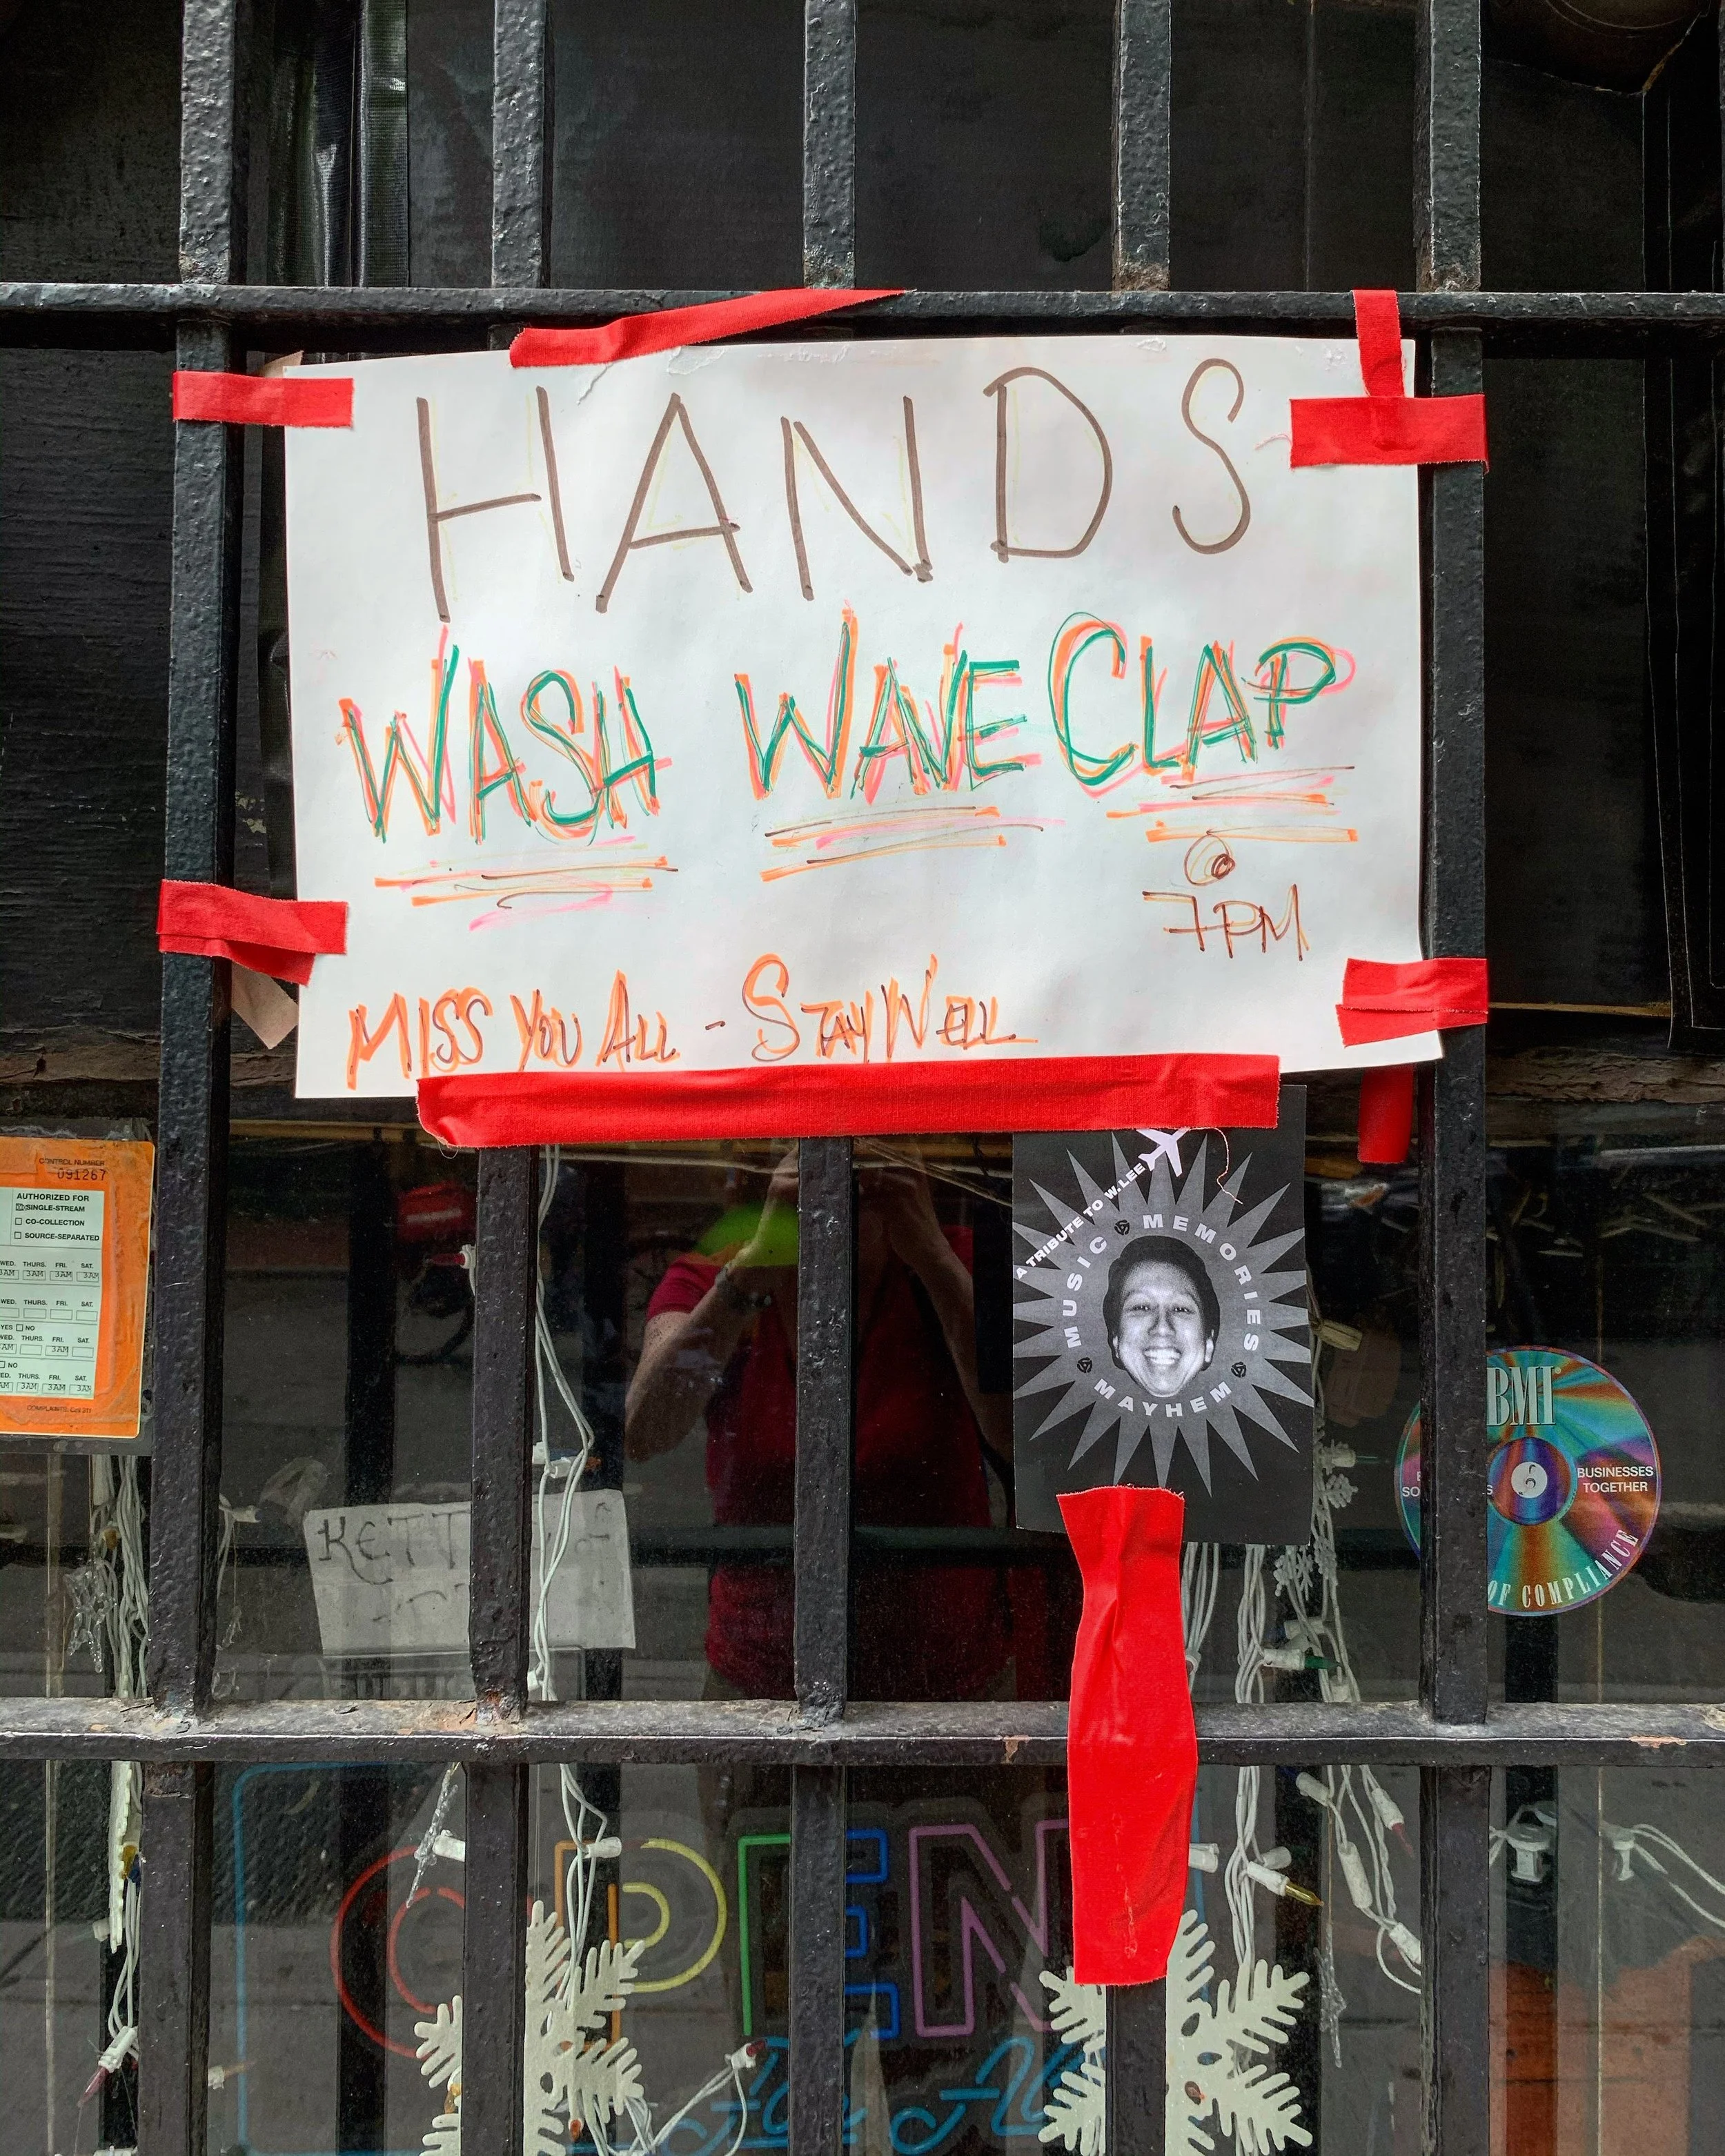 HANDS
WASH WAVE CLAP
@
7PM
MISS YOU ALL - STAY WELL
CONTROL NUMBER
091267
AUTHORIZED FOR
SINGLE-STREAM
CO-COLLECTION
SOURCE-SEPARATED
WED. THURS. FRI. SAT.
3AM 3AM 3AM 3AM
WED. THURS. FRI. SAT.
YES NO
WED. THURS. FRI. SAT.
3AM
NO
WED. THURS. FRI. SAT.
3AM 3AM
A TRIBUTE TO W. LEE
MUSIC MEMORIES
MAYHEM
BMI
BUSINESSES
TOGETHER
OF COMPLIANCE
KETT
OPEN